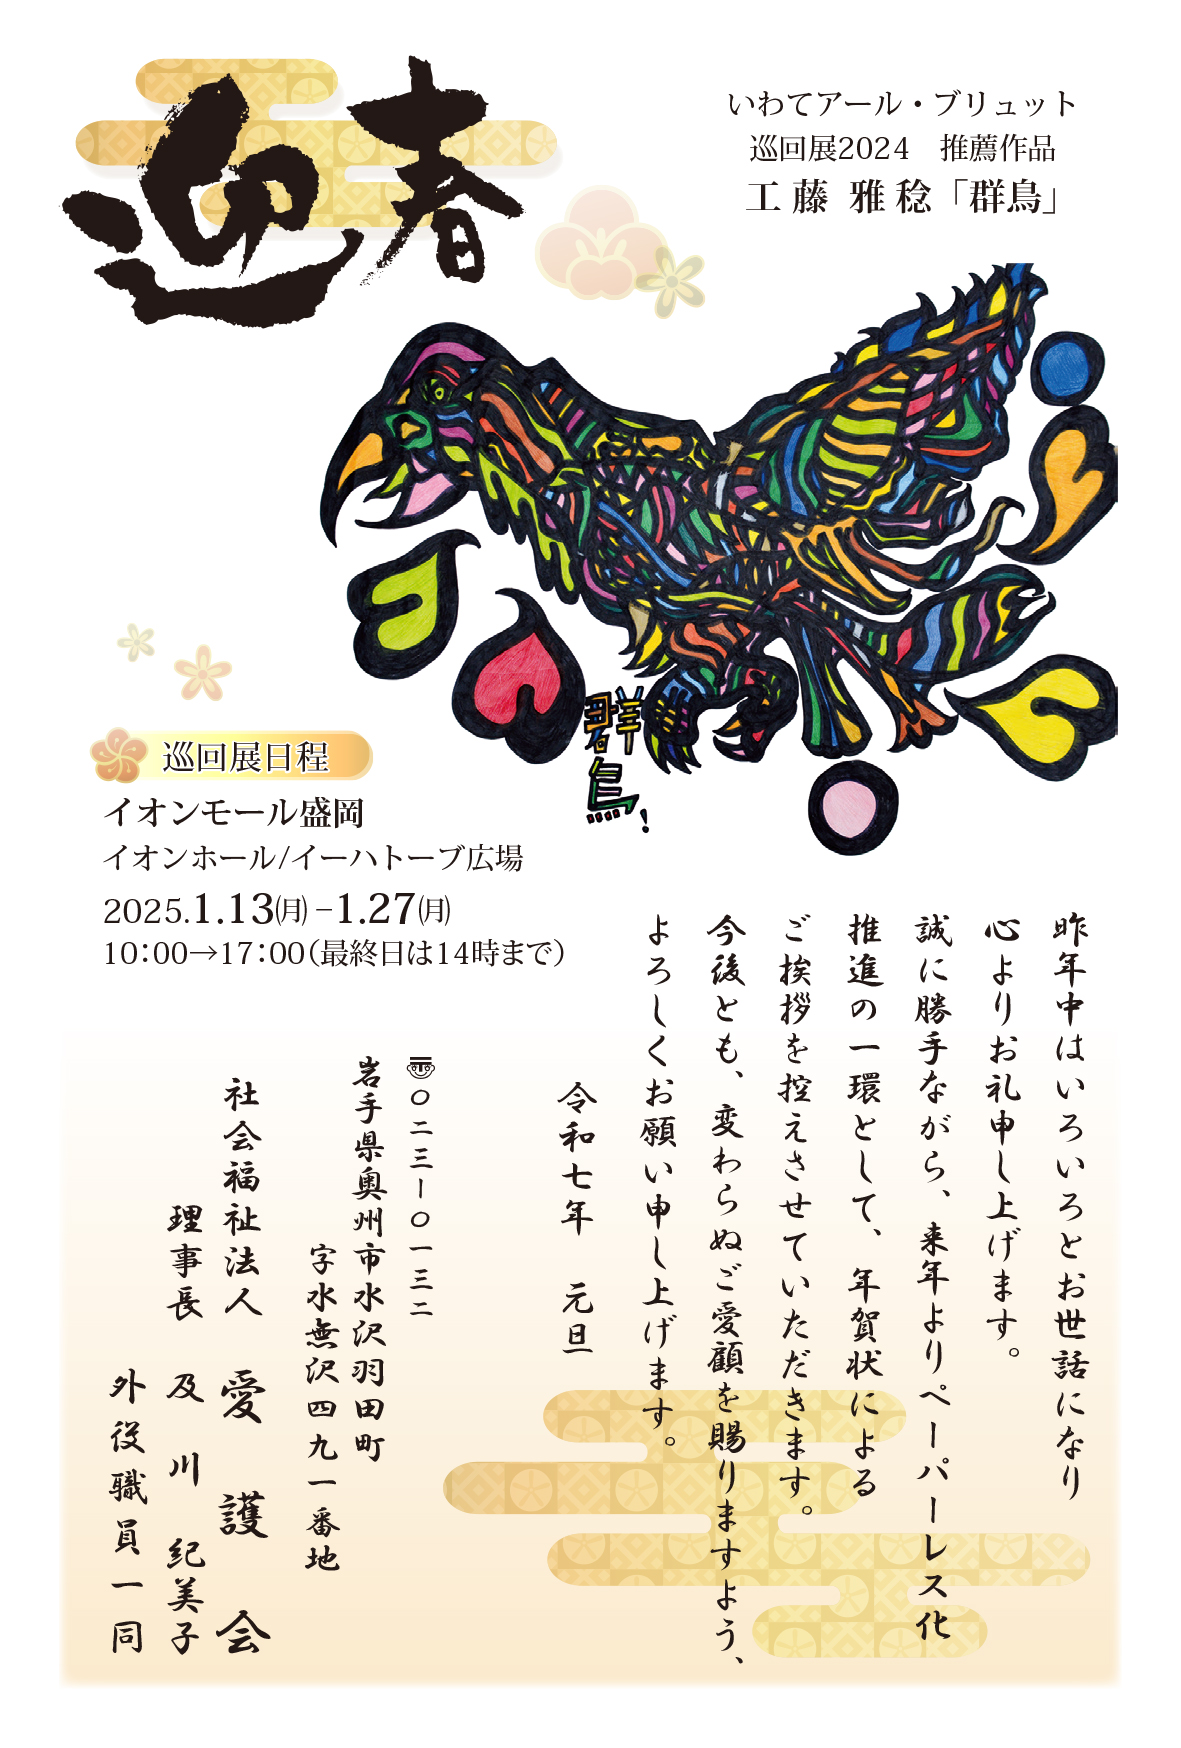 迎春
いわてアール・ブリュット
巡回展2024　推薦作品
工藤 雅稔「群鳥」
群鳥!
巡回展日程
イオンモール盛岡
イオンホール/イーハトーブ広場
2025.1.13㈪−1.27㈪
10:00→17:00(最終日は14時まで)
昨年中はいろいろとお世話になり
心よりお礼申し上げます。
誠に勝手ながら、来年よりペーパーレス化
推進の一環として、年賀状による
ご挨拶を控えさせていただきます。
今後とも、変わらぬご愛顧を賜りますよう、
よろしくお願い申し上げます。
令和七年　元旦
〠〇二三ー〇一三二
岩手県奥州市水沢羽田町
字水無沢四九一番地
社会福祉法人　愛護会
理事長　及川　紀美子
外役職員一同